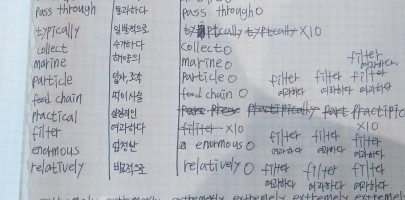 pass through 통과하다 pass through O
typically 일반적으로 typically typically X10
collect 수거하다 collect O
marine 해양의 marine O filter 여과하다
particle 입자, 조각 particle O filter 여과하다 filter 여과하다 filter 여과하다
food chain 먹이사슬 food chain O
practical 실용적인 practipically practipic X10
filter 여과하다 filter X10 filter 여과하다 filter 여과하다 filter 여과하다
enormous 엄청난 enormous O
relatively 비교적으로 relatively O filter 여과하다 filter 여과하다 filter 여과하다
extremely extremely extremely extremely extremely